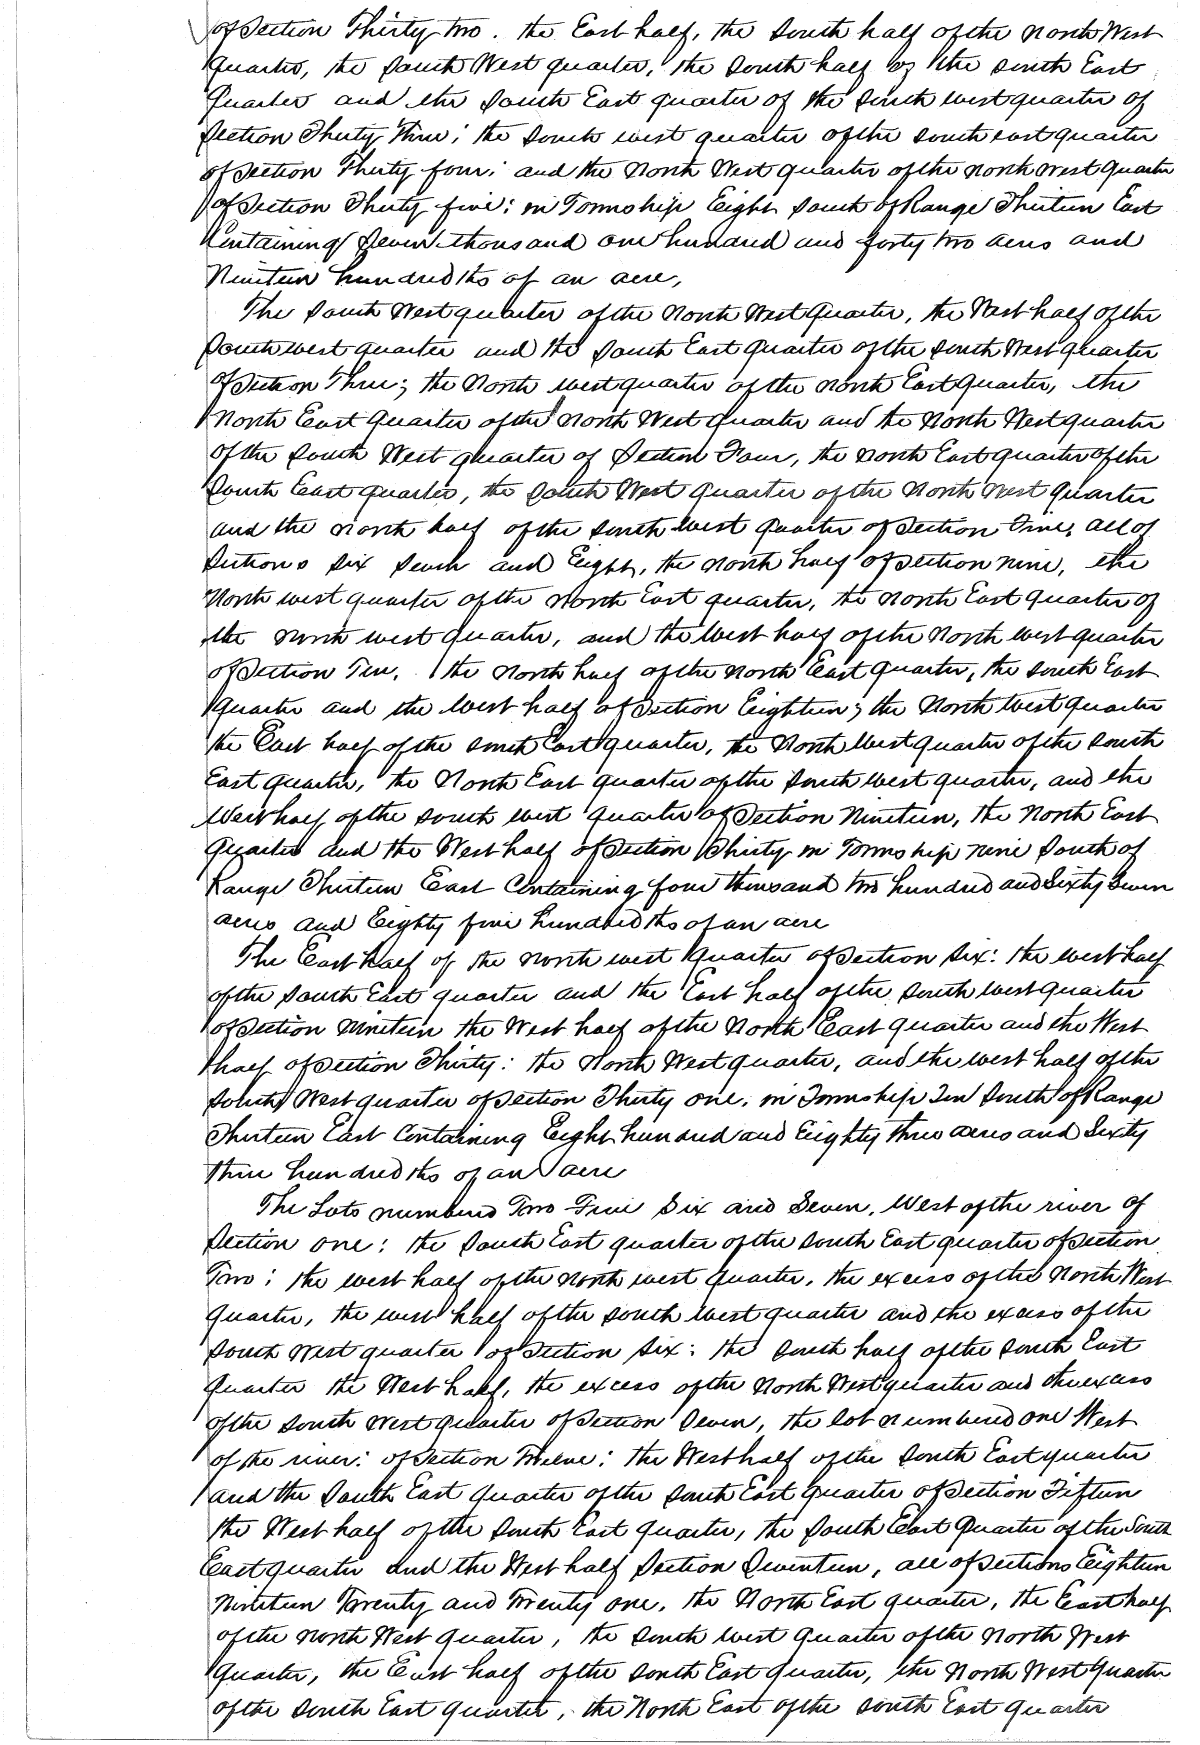 of Section Thirty two. the East half, the South half of the North West
Quarter, the South West quarter, the South half of the South East
Quarter and the South East quarter of the South west quarter of
Section Thirty Three; the South west quarter of the South east quarter
of Section Thirty four; and the North West quarter of the north west quarter
of Section Thirty five; in Township Eight South of Range Thirteen East
Containing Seven thousand one hundred and forty two acres and
Nineteen hundredths of an acre,
The South West quarter of the North West Quarter, the West half of the
South west quarter and the South East Quarter of the South West quarter
of Section Three; the North west quarter of the north East Quarter, the
North East Quarter of the North West Quarter and the North West quarter
of the South West quarter of Section Four, the North East quarter of the
South East quarter, the South West quarter of the North West quarter
and the North half of the South west quarter of Section Five, all of
Sections Six Seven and Eight, the north half of Section nine, the
North west quarter of the North East quarter, the North East quarter of
the north west quarter, and the West half of the North west quarter
of Section Ten, the North half of the North East quarter, the South East
quarter and the West half of Section Eighteen; the North West quarter
the East half of the South East quarter, the North West quarter of the South
East quarter, the North East quarter of the South west quarter, and the
West half of the South west quarter of Section Nineteen, the North East
Quarter and the West half of Section Thirty in Township nine South of
Range Thirteen East Containing four thousand two hundred and Sixty Seven
acres and Eighty five hundredths of an acre
The East half of the north west Quarter of Section Six: the west half
of the South East quarter and the East half of the South west quarter
of Section Nineteen the West half of the North East quarter and the West
half of Section Thirty: the North West quarter, and the west half of the
South West quarter of Section Thirty one, in Township Ten South of Range
Thirteen East Containing Eight hundred and Eighty three acres and Sixty
three hundredths of an acre
The Lots numbered Two Five Six and Seven, West of the river of
Section one: the South East quarter of the South East quarter of Section
Two: the west half of the North west quarter, the excess of the North West
quarter, the west half of the South West quarter and the excess of the
South West quarter of Section Six: the South half of the South East
Quarter the West half, the excess of the North West quarter and the excess
of the South West quarter of Section Seven, the lot numbered one West
of the river: of Section Twelve: the West half of the South East quarter
and the South East Quarter of the South East Quarter of Section Fifteen
the West half of the South East quarter, the South East Quarter of the South
East quarter and the West half Section Seventeen, all of Sections Eighteen
Nineteen Twenty and Twenty one, the North East quarter, the East half
of the North West quarter, the South west quarter of the North West
quarter, the East half of the South East quarter, the North West Quarter
of the South East quarter, the North East of the South East quarter